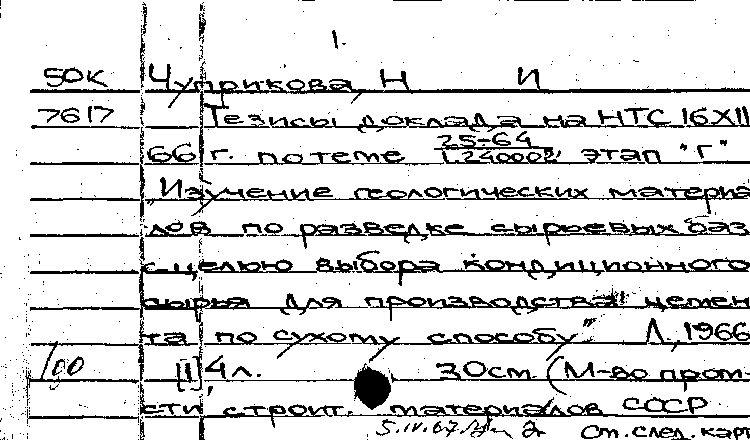 1.
50К Чуприкова, Н И
7617 Тезисы доклада на НТС 16XII
66 г. по теме 25-64 этап "Г"
"Изучение геологических материа
лов по разведке сырьевых баз
с целью выбора кондиционного
сырья для производства цемен
та по сухому способу" Л., 1966
100 [1], 4 л. 30см (М-во пром-
сти строит. материалов СССР
5.IV.67 См. след. карт